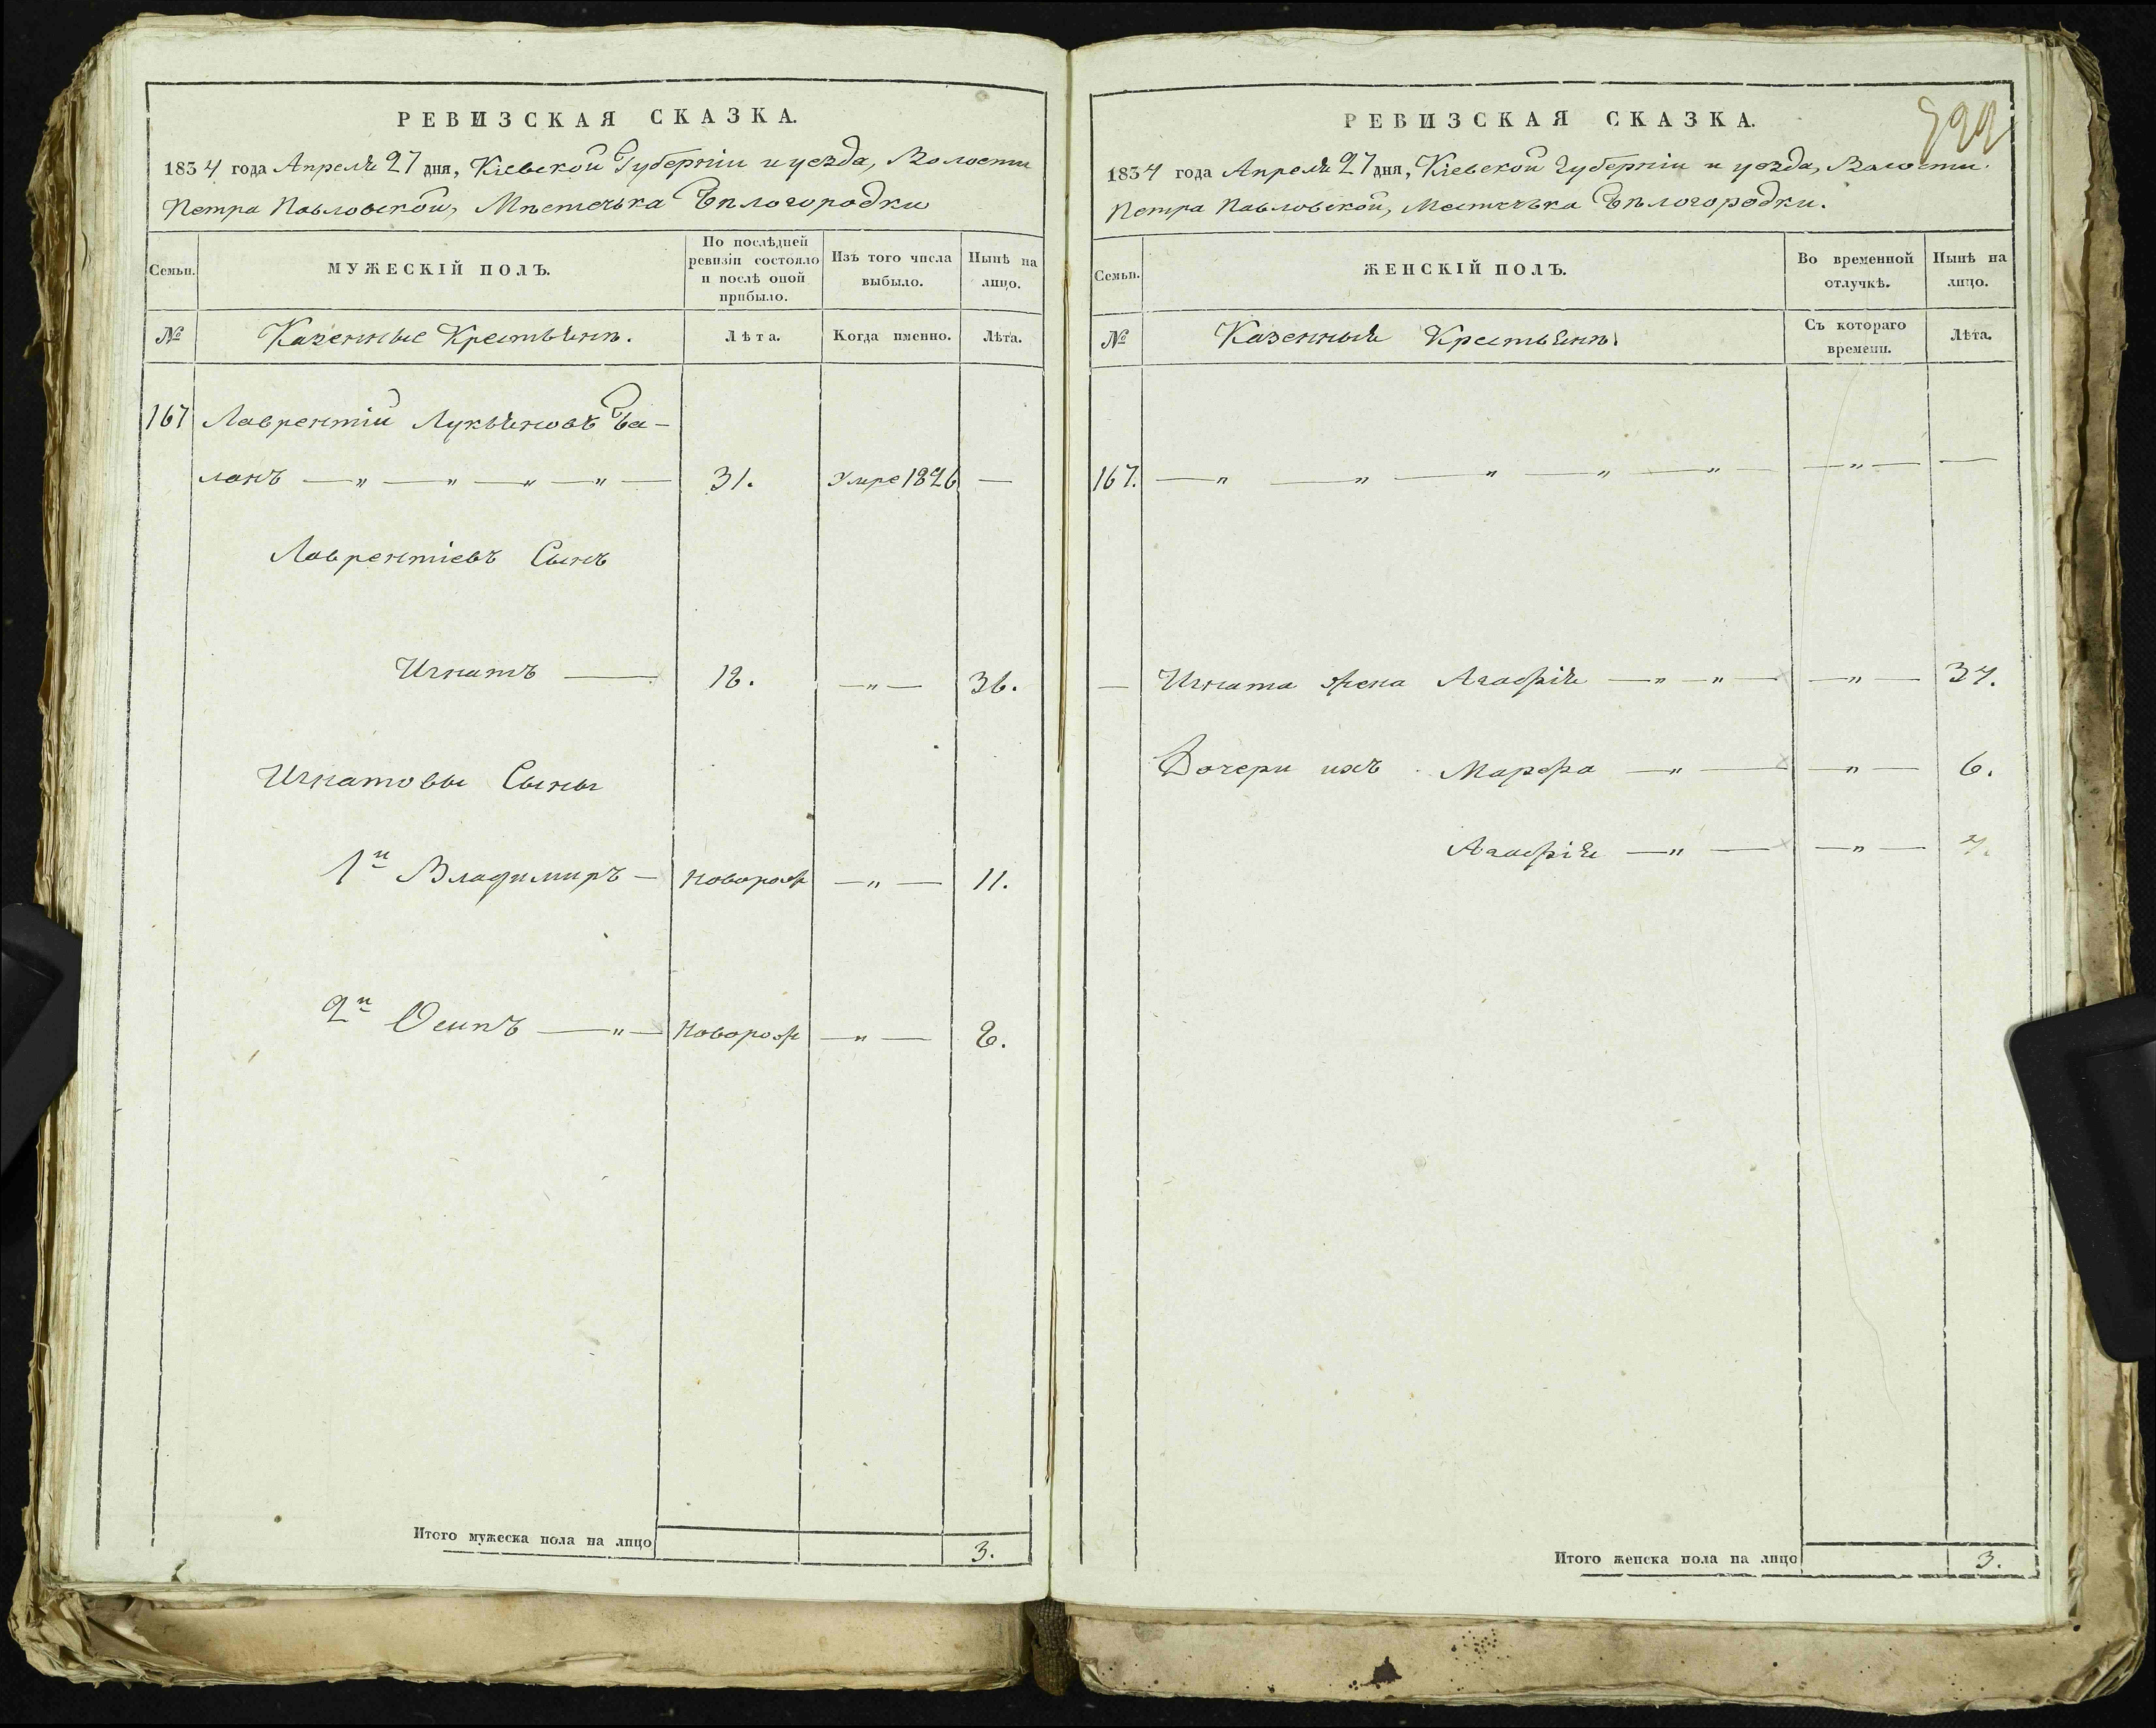 РЕВИЗСКАЯ СКАЗКА.
1834 года Апреля 27 дня, Кіевской Губерніи и уезда, Волости
Петра Павловской, Мѣстечька Бѣлогородки
Семьи.
МУЖЕСКІЙ ПОЛЪ.
По послѣдней ревизіи состояло и послѣ оной прибыло.
Изъ того числа выбыло.
Нынѣ на лицо.
№
Казенные Крестьянѣ.
Лѣта.
Когда именно.
Лѣта.
167 Лаврентій Лукьяновъ Ба-
ланъ — „ — „ — „ — „ — 31. Умре 1826 —
Лаврентіевъ Сынъ
Игнатъ — — „ — 36.
Игнатовы Сыны
1й Владимиръ — Новорож — „ — 11.
2й Осипъ — „ — Новорож — „ —
Итого мужеска пола на лицо 3.
РЕВИЗСКАЯ СКАЗКА.
1834 года Апреля 27 дня, Кіевской Губерніи и уезда, Волости
Петра Павловской, Местечька Бѣлогородки.
Семьи.
ЖЕНСКІЙ ПОЛЪ.
Во временной отлучкѣ.
Нынѣ на лицо.
№
Казенныя Крестьянѣ.
Съ котораго времени.
Лѣта.
167. — „ — „ — „ — „ — „ — — „ — —
— Игната жена Агафія — „ — „ — — „ — 34.
Дочери ихъ Марфа — „ — — „ — 6.
Агафія — „ — — „ — 4.
Итого женска пола на лицо 3.